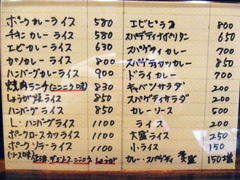 ポークカレーライス 580
チキンカレーライス 580
エビカレーライス 630
カツカレーライス 800
ハンバーグカレーライス 900
焼肉ランチ(ニンニク味) 830
しょうが焼ライス 850
ハンバーグライス 850
L・ハンバーグライス 1100
ポークロースカツライス 1100
ポークソテーライス 1100
エビピラフ 800
スパゲティナポリタン 650
スパゲティカレー 700
スパゲティカツカレー 850
ドライカレー 700
キャベツサラダ 200
スパゲティサラダ 200
コンソメスープ 50
ライス 200
大盛ライス 250
小ライス 150
カレー・スパゲティ 大盛 150増